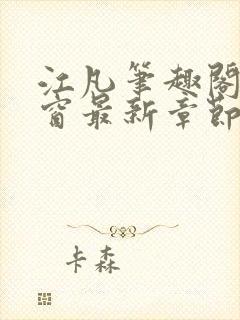 江凡筆趣閣
窗最新章節
卡森